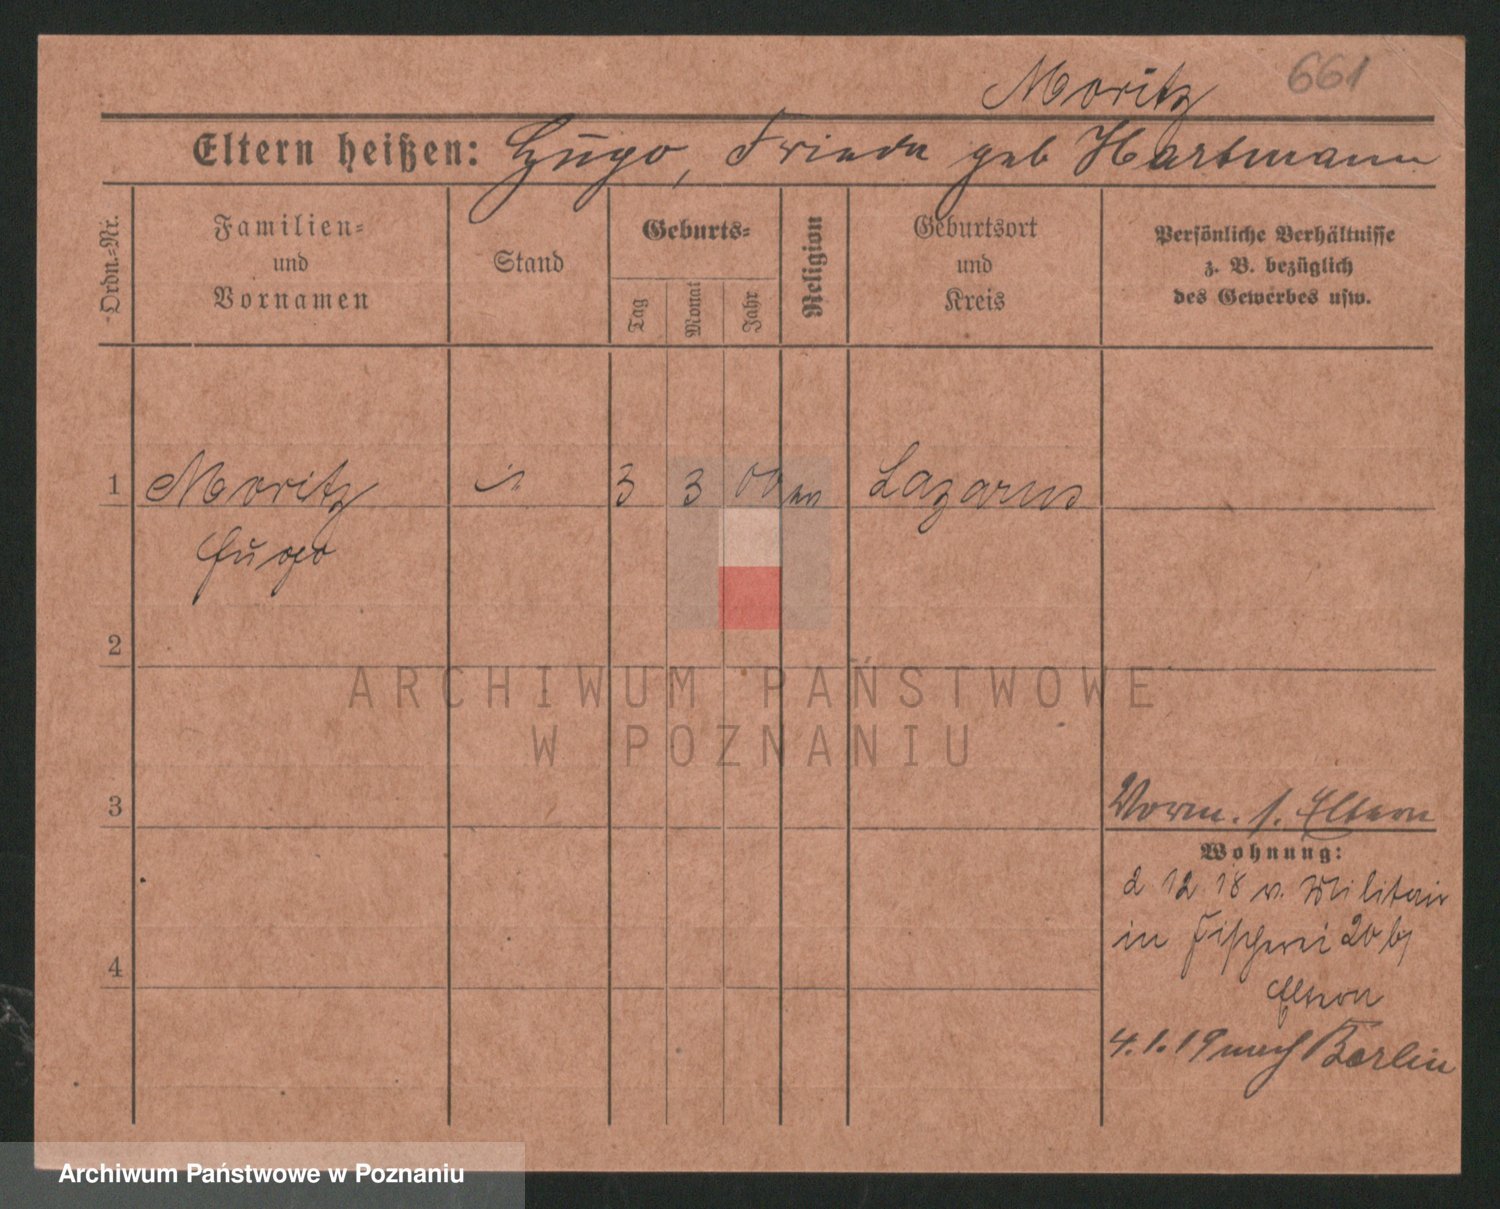 661
Moritz
Eltern heißen: Hugo, Frieda geb Hartmann
Ordn.-Nr.
Familien-
und
Vornamen
Stand
Geburts-
Tag
Monat
Jahr
Religion
Geburtsort
und
Kreis
Persönliche Verhältnisse
z. B. bezüglich
des Gewerbes usw.
1 Moritz 3 3 00 ev Lazarus
Hugo
2
ARCHIWUM PAŃSTWOWE
W POZNANIU
3
Vorm. s. Eltern
Wohnung:
2 12 18 v. Militair
in Fischerei 20 b/
Eltern
4
4.1.19 nach Berlin
Archiwum Państwowe w Poznaniu